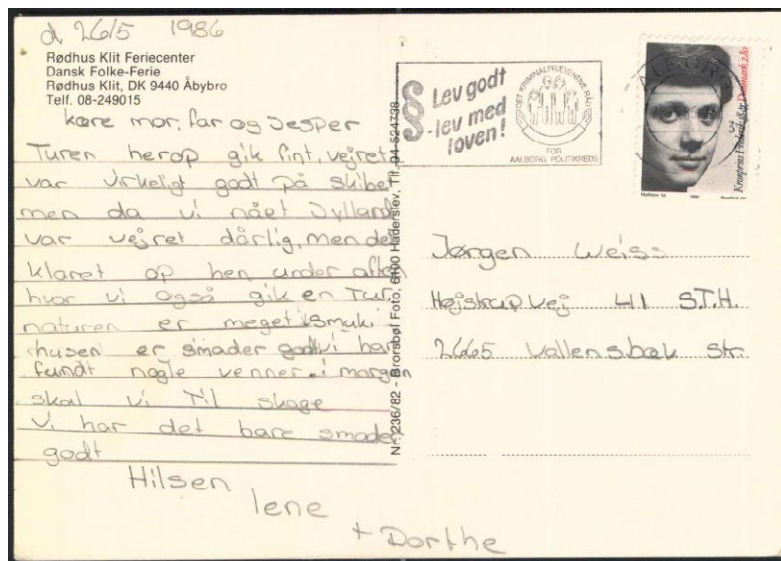 d 26/5 1986
Rødhus Klit Feriecenter
Dansk Folke-Ferie
Rødhus Klit, DK 9440 Åbybro
Telf. 08-249015
kære mor, far og Jesper
Turen herop gik fint, vejret
var virkeligt godt på skibet
men da vi nået Jylland
var vejret dårlig, men det
klaret op hen under aften
hvor vi også gik en Tur.
naturen er meget smuk i
husen er smader godt vi har
fundt nogle venner. i morgen
skal vi Til skage
vi har det bare smader
godt
Hilsen
lene
+ Dorthe
Nr. 236/82 - Brorsbøl Foto, 6100 Haderslev, Tlf. 04-524738
§ Lev godt
- lev med
loven!
DET KRIMINALPRÆVENTIVE RÅD
FOR
AALBORG POLITIKREDS
Kronprins Frederik 18 år Danmark 2.80
Jørgen Weiss
Højstrupvej 41 S.T.H.
2665 Vallensbæk Str.